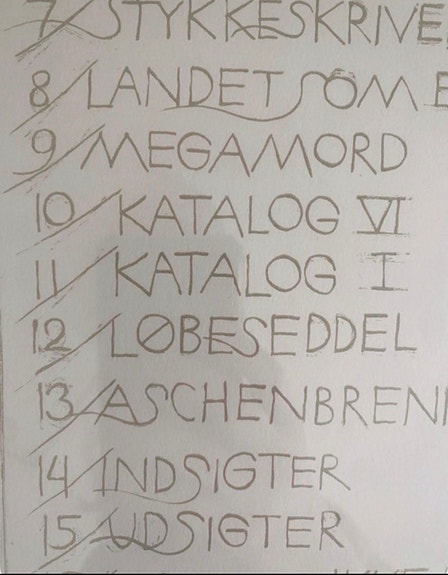 7/ STYKKESKRIVE
8/ LANDET SOM E
9/ MEGAMORD
10/ KATALOG VI
11/ KATALOG I
12/ LØBESEDDEL
13/ ASCHENBREN
14/ INDSIGTER
15/ UDSIGTER